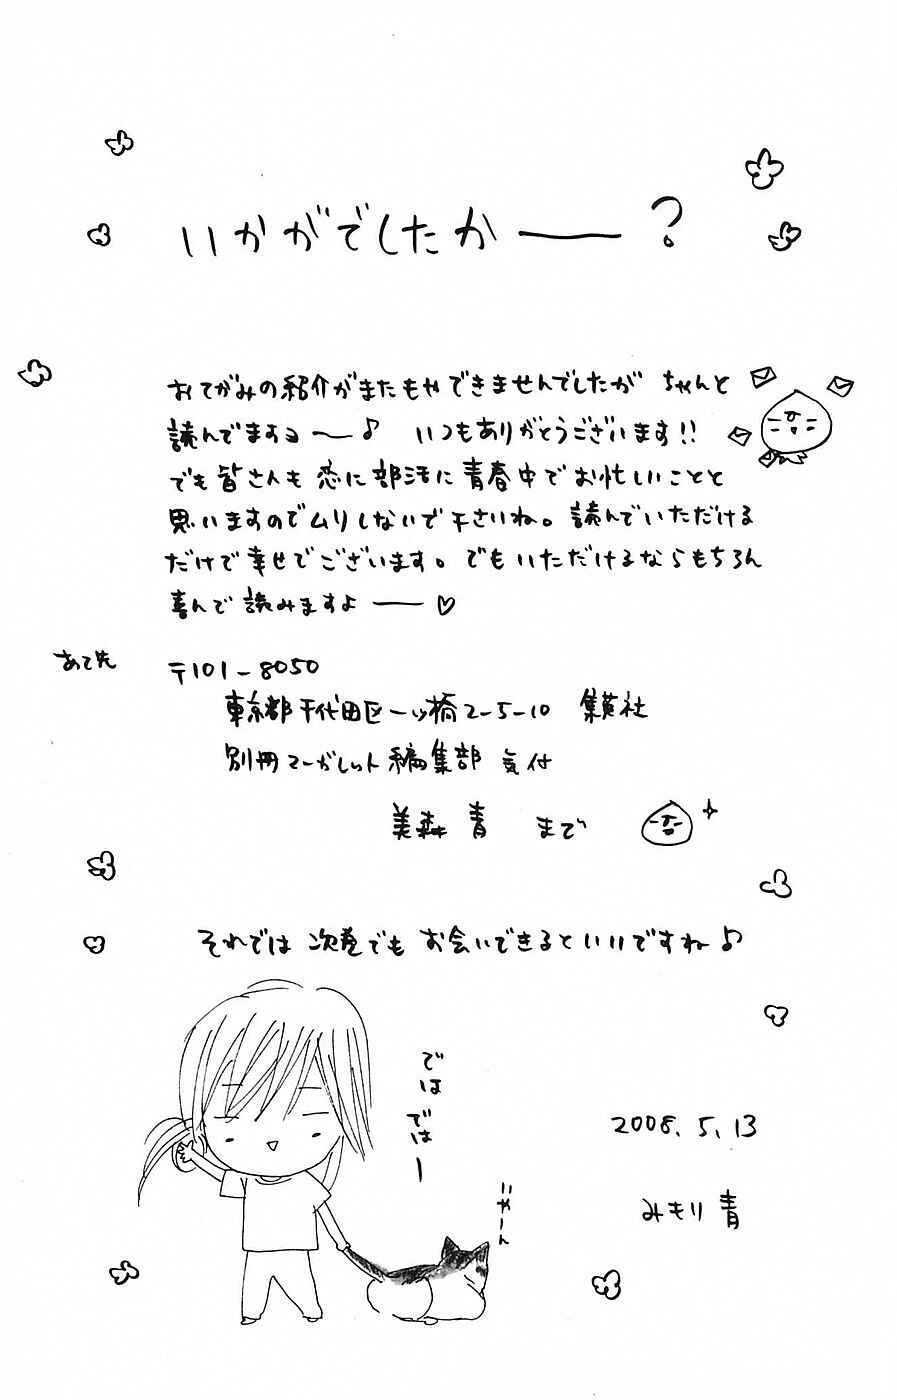 いかがでしたか――?
おてがみの紹介がまたもやできませんでしたが ちゃんと
読んでますョ〜♪ いつもありがとうございます!!
でも皆さんも 恋に部活に青春中でお忙しいことと
思いますのでムリしないで下さいね。読んでいただける
だけで幸せでございます。でもいただけるならもちろん
喜んで読みますよ――♡
あて先
〒101-8050
東京都千代田区一ツ橋2-5-10 集英社
別冊マーガレット編集部 気付
美森 青 まで
それでは 次巻でも お会いできるといいですね♪
では
ではー
にゃーん
2008.5.13
みもり 青